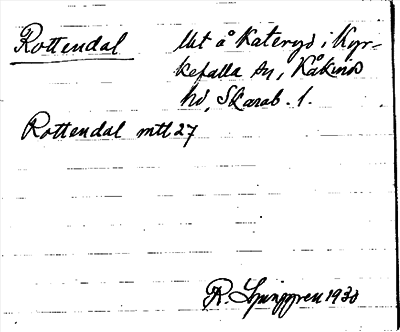 Rottendal
Utt å Kateryd i Kyr-
kefalla sn, Kåkinds
hd, Skarab. l.
Rottendal mtl 27
R. Ljunggren 1930